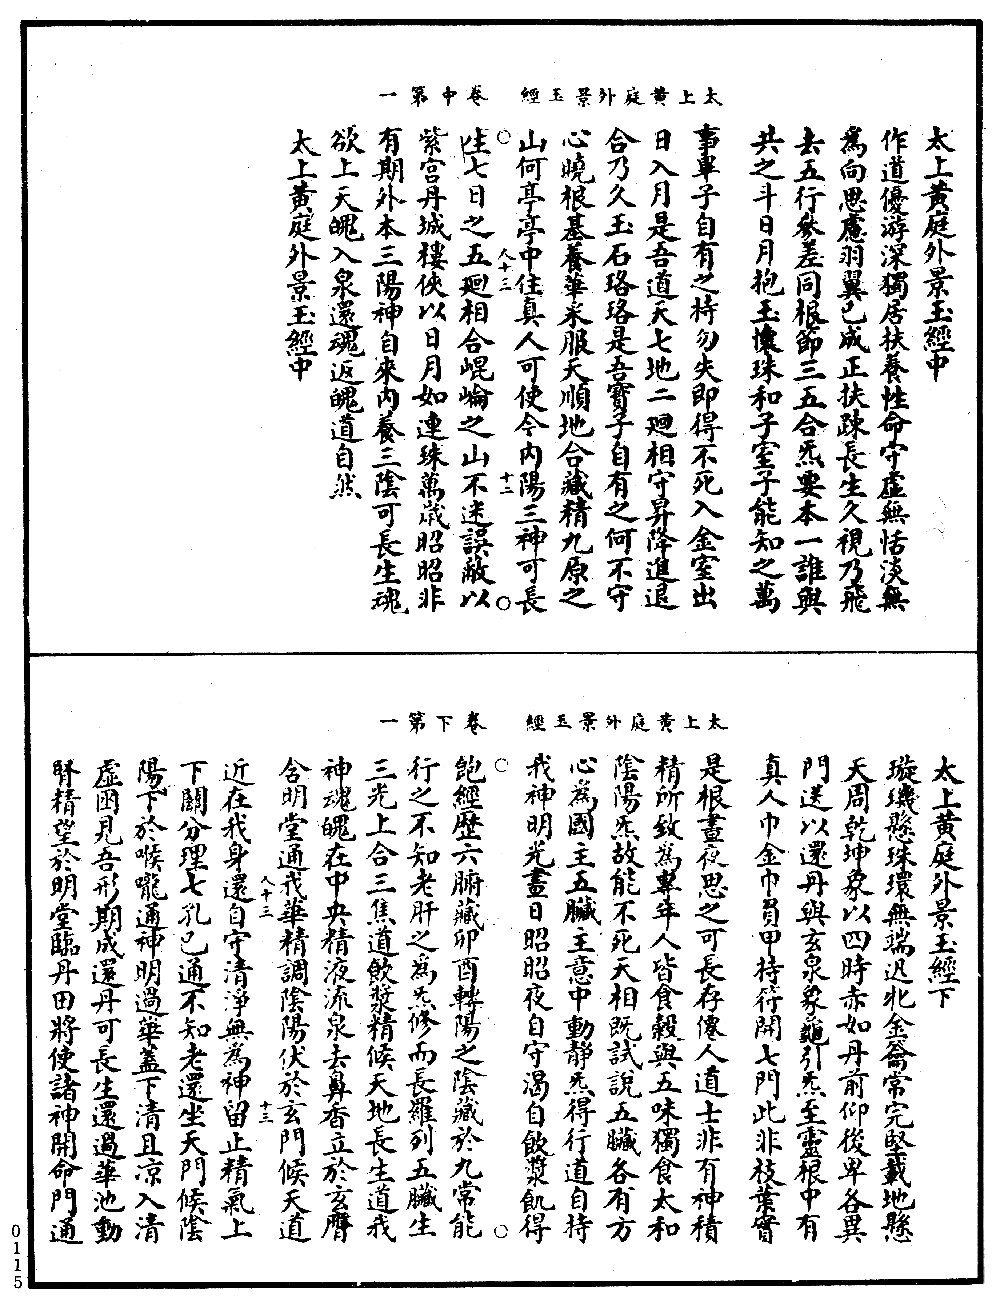 太上黃庭外景玉經　卷中第一
太上黃庭外景玉經中
作道優游深獨居扶養性命守虛無恬淡無
為向思慮羽翼已成正扶踈長生久視乃飛
去五行參差同根節三五合炁要本一誰與
共之斗日月抱玉懷珠和子室子能知之萬
事畢子自有之持勿失即得不死入金室出
日入月是吾道天七地二廻相守昇降進退
合乃久玉石珞珞是吾寶子自有之何不守
心曉根基養華采服天順地合藏精九原之
山何亭亭中住真人可使令內陽三神可長
〇　人十三　十二　〇
生七日之五廻相合崐崘之山不迷誤蔽以
紫宮丹城樓俠以日月如連珠萬歲昭昭非
有期外本三陽神自來內養三陰可長生魂
欲上天魄入泉還魂返魄道自然
太上黃庭外景玉經中
太上黃庭外景玉經　卷下第一
太上黃庭外景玉經下
璇璣懸珠環無端迟牝金籥常完堅載地懸
天周乾坤象以四時赤如丹前仰後卑各異
門送以還丹與玄泉象龜引炁至靈根中有
真人巾金巾負甲持符開七門此非枝葉實
是根晝夜思之可長存僊人道士非有神積
精所致為專年人皆食糓與五味獨食太和
陰陽炁故能不死天相既試說五臟各有方
心為國主五臟主意中動靜炁得行道自持
我神明光晝日昭昭夜自守渴自飲漿飢得
〇　〇
飽經歷六腑藏卯酉轉陽之陰藏於九常能
行之不知老肝之為炁修而長羅列五臟生
三光上合三焦道飲漿精候天地長生道我
神魂魄在中央精液流泉去鼻香立於玄膺
含明堂通我華精調陰陽伏於玄門候天道
人十三　十三
近在我身還自守清淨無為神留止精氣上
下關分理七孔已通不知老還坐天門候陰
陽下於喉嚨通神明過華蓋下清且凉入清
虛囦見吾形期成還丹可長生還過華池動
腎精望於明堂臨丹田將使諸神開命門通
0115